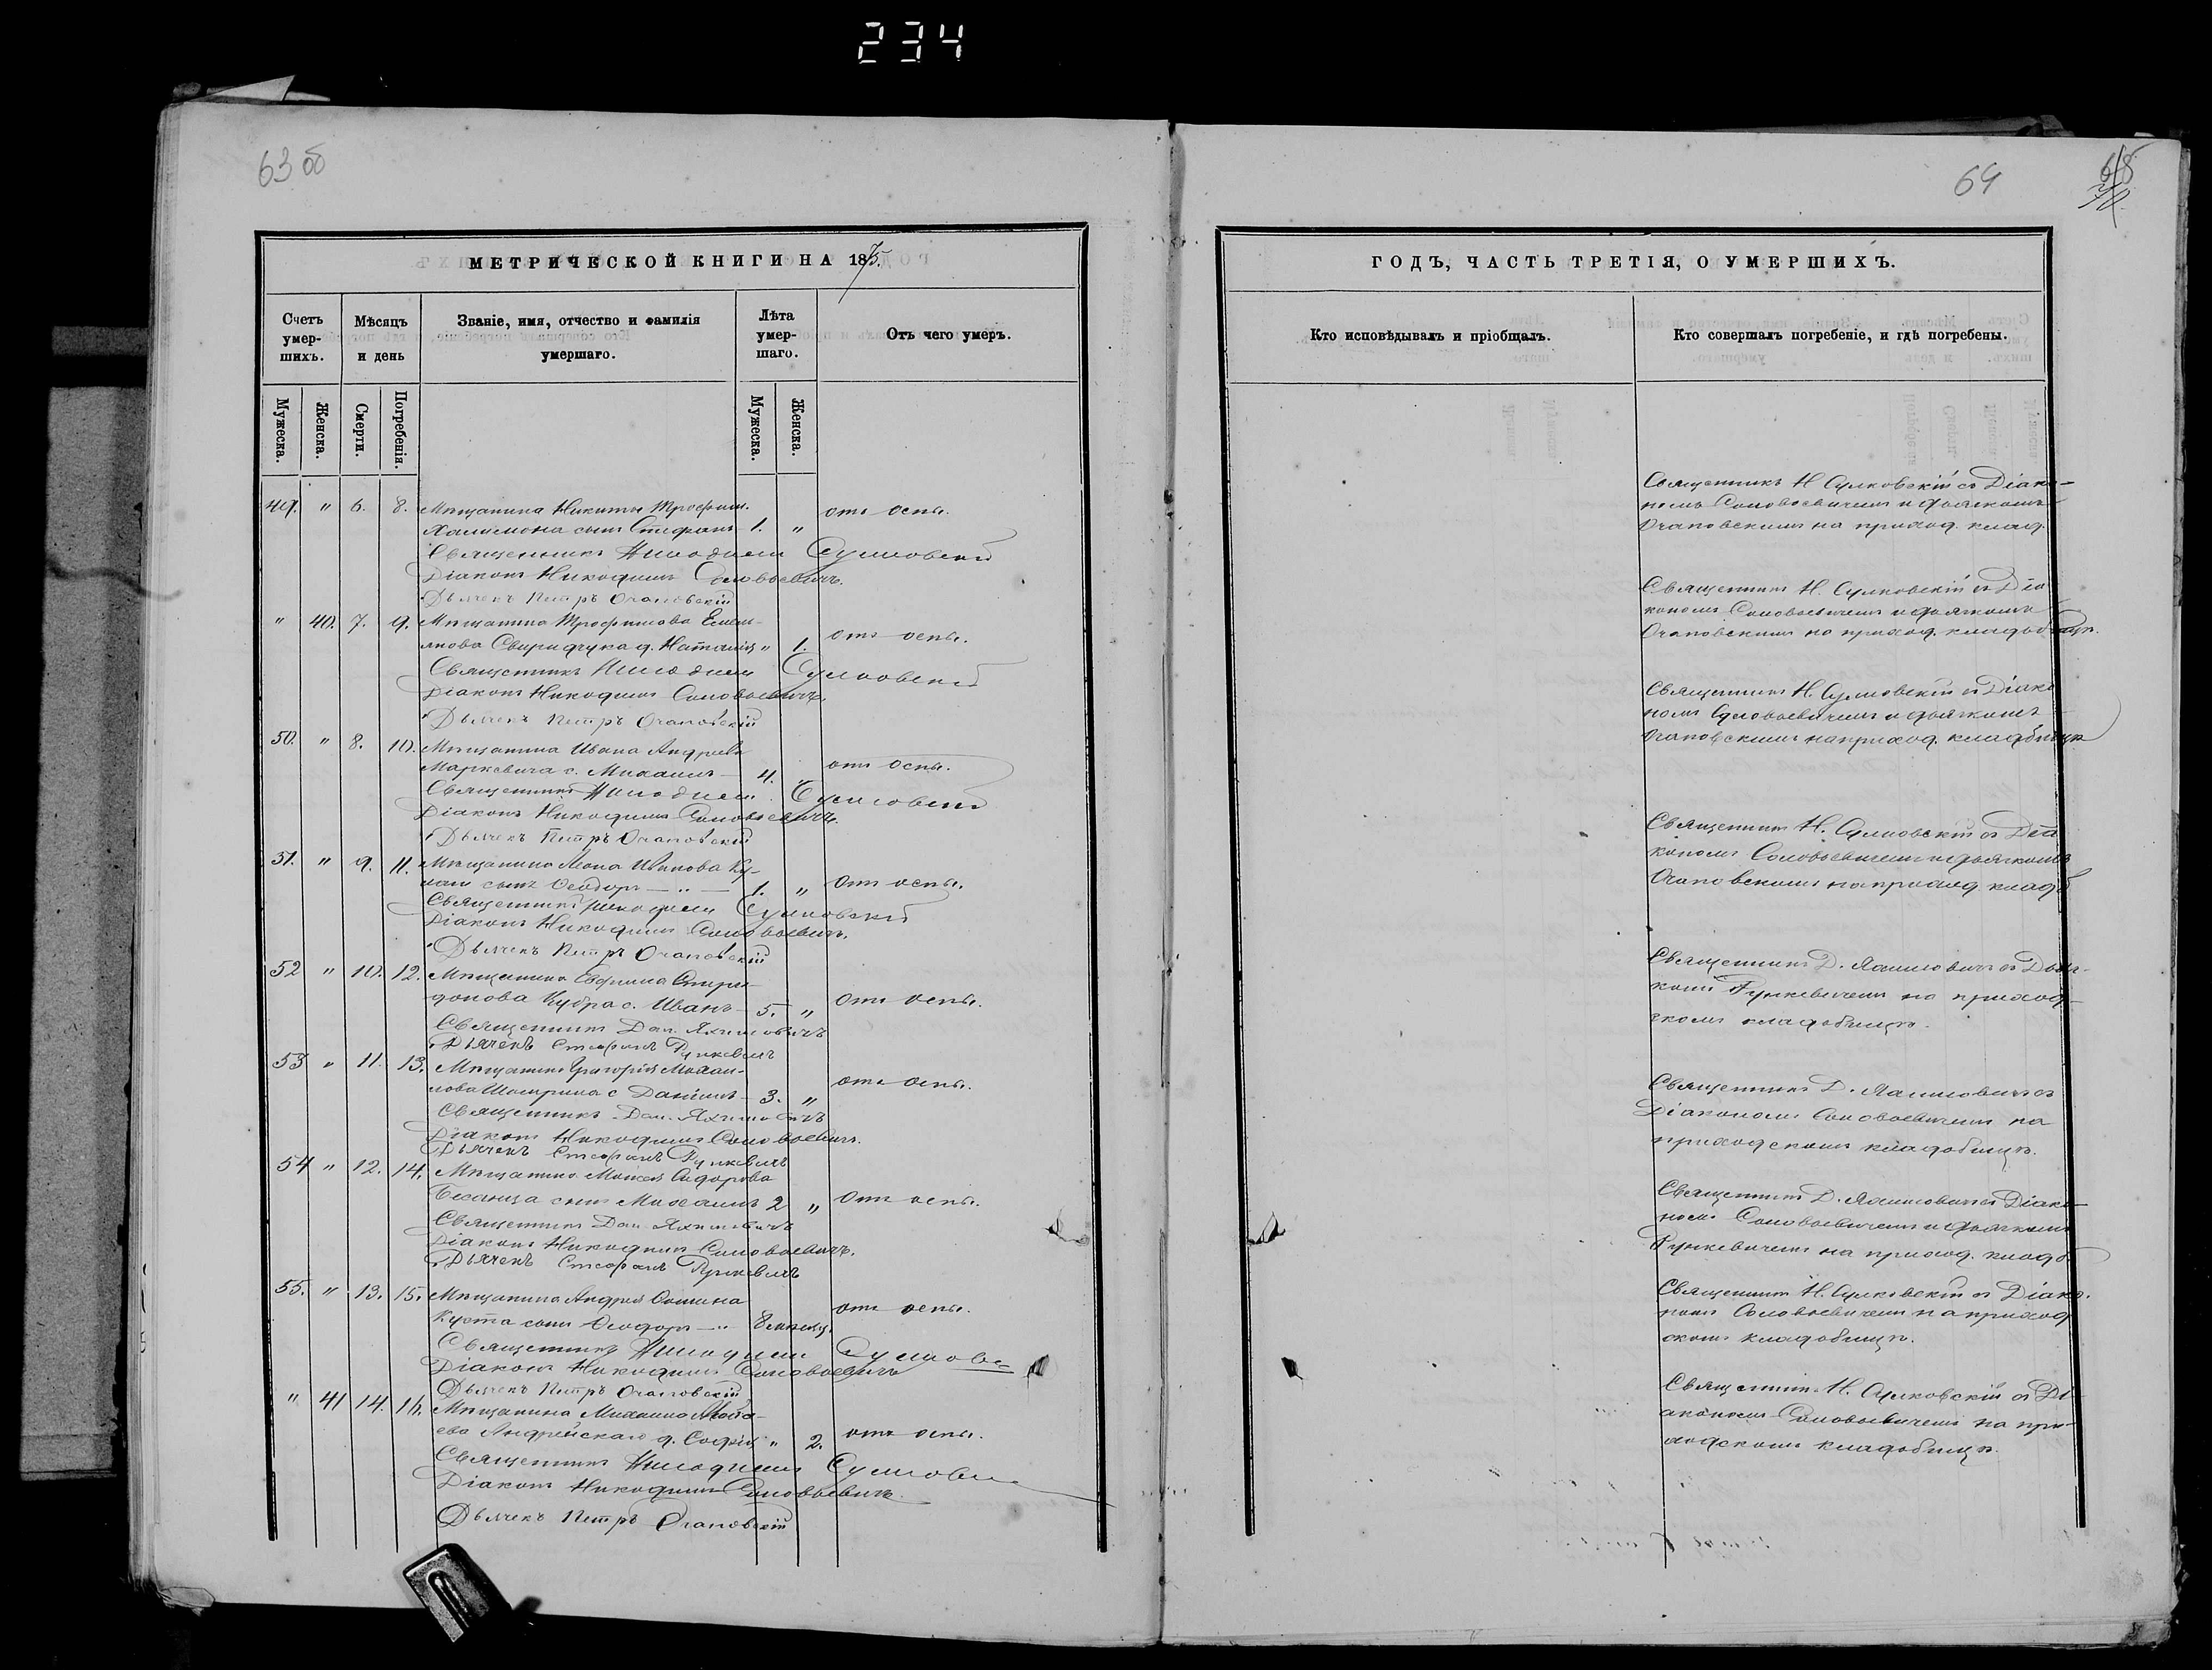 234
63 об
МЕТРИЧЕСКОЙ КНИГИ НА 1875.
Счетъ умер-шихъ.
Мѣсяцъ и день
Званіе, имя, отчество и фамилія умершаго.
Лѣта умер-шаго.
Отъ чего умеръ.
Мужеска.
Женска.
Смерти.
Погребенія.
Мужеска.
Женска.
49. " 6. 8. Мѣщанина Никиты Трофим.
сынъ Стефанъ 1. " отъ оспы.
Священникъ
Діаконъ Никодимъ Соловьевичъ.
Дьячекъ Петръ Очаповскій
" 40. 7. 9. Мѣщанина Трофимова Емель-
янова Свиридчука д. Наталія " 1. отъ оспы.
Священникъ
Діаконъ Никодимъ Соловьевичъ.
Дьячекъ Петръ Очаповскій
50. " 8. 10. Мѣщанина Ивана Андреева
Маркевича с. Михаилъ 4. " отъ оспы.
Священникъ
Діаконъ Никодимъ Соловьевичъ.
Дьячекъ Петръ Очаповскій
51. " 9. 11. Мѣщанина Леона Иванова Ку-
сынъ Ѳеодоръ — " — 1. " отъ оспы.
Священникъ
Діаконъ Никодимъ Соловьевичъ.
Дьячекъ Петръ Очаповскій
52 " 10. 12. Мѣщанина Евфима Спири-
донова Кубра с. Иванъ 5. " отъ оспы.
Священникъ Дан. Яхимовичъ
Дьячекъ Стефанъ Рункевичъ
53 " 11. 13. Мѣщанина Григорія Михаи-
лова с. Даніилъ 3. " отъ оспы.
Священникъ Дан. Яхимовичъ
Діаконъ Никодимъ Соловьевичъ.
Дьячекъ Стефанъ Рункевичъ
54 " 12. 14. Мѣщанина Моисея Сидорова
сынъ Михаилъ 2 " отъ оспы.
Священникъ Дан. Яхимовичъ
Діаконъ Никодимъ Соловьевичъ.
Дьячекъ Стефанъ Рункевичъ
55. " 13. 15. Мѣщанина Андрея
Куста сынъ Ѳеодоръ — " 8 мѣсяц. отъ оспы.
Священникъ
Діаконъ Никодимъ Соловьевичъ
Дьячекъ Петръ Очаповскій
" 41 14. 16. Мѣщанина Михаила
ева Андрейскаго д. Софія " 2. отъ оспы.
Священникъ
Діаконъ Никодимъ Соловьевичъ.
Дьячекъ Петръ Очаповскій
64
ГОДЪ, ЧАСТЬ ТРЕТІЯ, О УМЕРШИХЪ.
Кто исповѣдывалъ и пріобщалъ.
Кто совершалъ погребеніе, и гдѣ погребены.
Священникъ Н Сулковскій съ Діако-
номъ Соловьевичемъ и дьячкомъ
Очаповскимъ на приход. клад.
Священникъ Н. Сулковскій съ Діа
кономъ Соловьевичемъ и дьячкомъ
Очаповскимъ на приход. кладбищѣ.
Священникъ Н. Сулковскій съ Діако
номъ Соловьевичемъ и дьячкомъ
Очаповскимъ на приход. кладбищѣ
Священникъ Н. Сулковскій съ Діа
кономъ Соловьевичемъ и дьячкомъ
Очаповскимъ на приход кладб
Священникъ Д. Яхимовичъ съ Дьяч-
комъ Рункевичемъ на приход-
скомъ кладбищѣ.
Священникъ Д. Яхимовичъ съ
Діакономъ Соловьевичемъ на
приходскомъ кладбищѣ.
Священникъ Д. Яхимовичъ съ Діако-
номъ Соловьевичемъ и дьячкомъ
Рункевичемъ на приход. кладб
Священникъ Н. Сулковскій съ Діако-
номъ Соловьевичемъ на приход
скомъ кладбищѣ.
Священникъ Н. Сулковскій съ Ді-
акономъ Соловьевичемъ на при-
ходскомъ кладбищѣ.